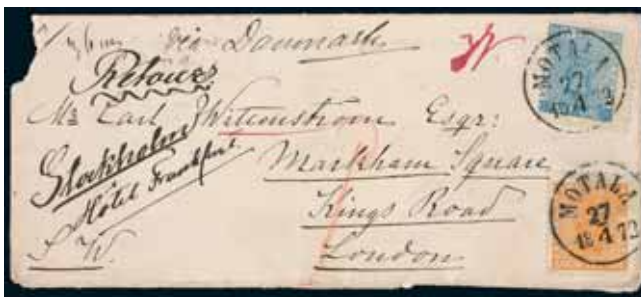 via Danmark
Retour
Mr Carl Wittenström Esqr:
Stockholm
Hôtel Frankfurt
Markham Square
Kings Road
London
S.W.
MOTALA
27
4
MOTALA
27
18 4 72